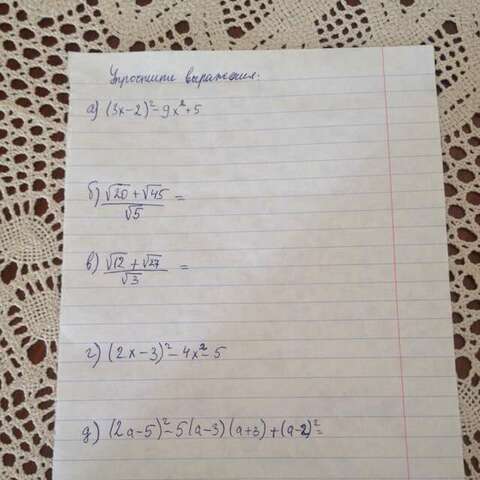 Упростите выражения:
а) (3x-2)²-9x²+5
б) (√20+√45)/√5 =
в) (√12+√27)/√3 =
г) (2x-3)²-4x²-5
д) (2a-5)²-5(a-3)(a+3)+(a-2)²=